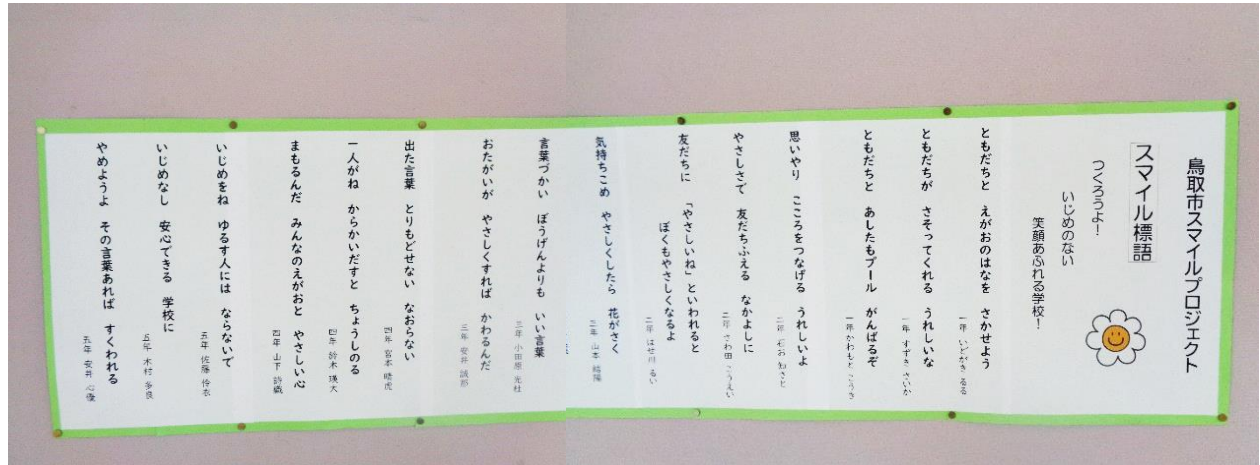 鳥取市スマイルプロジェクト
スマイル標語
つくろうよ!
いじめのない
笑顔あふれる学校!
ともだちと えがおのはなを さかせよう
一年 いどがき るる
ともだちが さそってくれる うれしいな
一年 すずき さいか
ともだちと あしたもプール がんばるぞ
一年 かわもと こうき
思いやり こころをつなげる うれしいよ
二年
やさしさで 友だちふえる なかよしに
二年 さわ田 こうえい
友だちに 「やさしいね」といわれると
ぼくもやさしくなるよ
二年 はせ川 るい
気持ちこめ やさしくしたら 花がさく
三年 山本
言葉づかい ぼうげんよりも いい言葉
三年 小田原 光杜
おたがいが やさしくすれば かわるんだ
三年 安井 誠都
出た言葉 とりもどせない なおらない
四年 宮本 晴虎
一人がね からかいだすと ちょうしのる
四年 鈴木 瑛大
まもるんだ みんなのえがおと やさしい心
四年 山下 詩織
いじめをね ゆるす人には ならないで
五年 佐藤 伶衣
いじめなし 安心できる 学校に
五年 木村 多良
やめようよ その言葉あれば すくわれる
五年 安井 心優